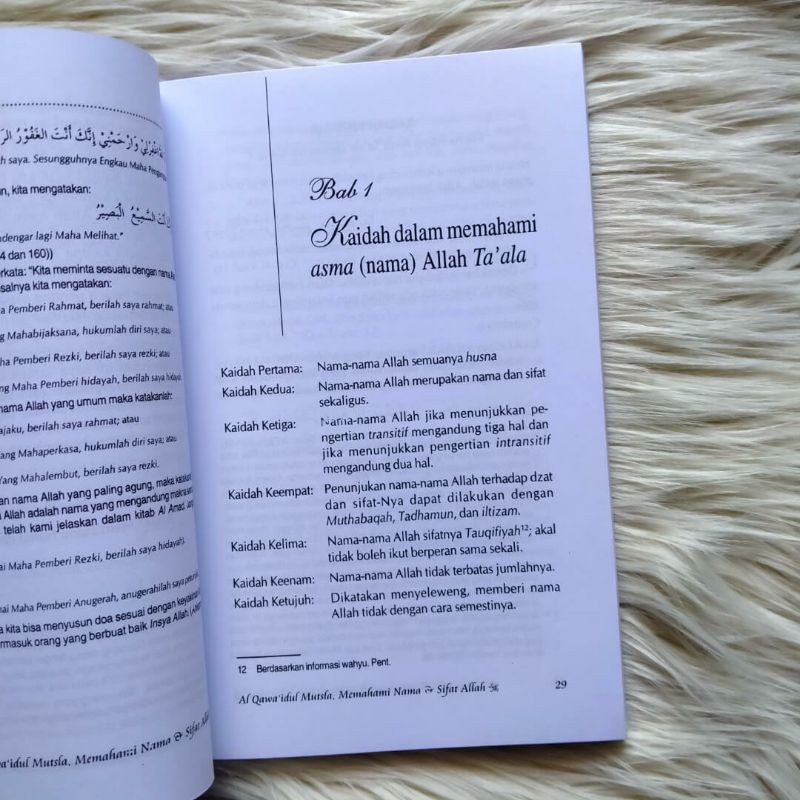 وَارْحَمْنِيْ إِنَّكَ أَنْتَ الغَفُوْرُ
saya. Sesungguhnya Engkau Maha
kita mengatakan:
أَنْتَ السَّمِيْعُ الْبَصِيْرُ
lagi Maha Melihat."
4 dan 160))
"Kita meminta sesuatu dengan nama
kita mengatakan:
Pemberi Rahmat, berilah saya rahmat; atau
Mahabijaksana, hukumlah diri saya; atau
Pemberi Rezki, berilah saya rezki; atau
Maha Pemberi hidayah, berilah saya hidayah.
nama Allah yang umum maka katakanlah:
berilah saya rahmat; atau
Mahaperkasa, hukumlah diri saya; atau
Mahalembut, berilah saya rezki.
nama Allah yang paling agung, maka
Allah adalah nama yang mengandung makna
telah kami jelaskan dalam kitab Al Amad
Maha Pemberi Rezki, berilah saya hidayah).
Maha Pemberi Anugerah, anugerahilah saya
kita bisa menyusun doa sesuai dengan
orang yang berbuat baik Insya Allah.
Mutsla, Memahami Nama & Sifat
Bab 1
Kaidah dalam memahami
asma (nama) Allah Ta'ala
Kaidah Pertama: Nama-nama Allah semuanya husna
Kaidah Kedua: Nama-nama Allah merupakan nama dan sifat
sekaligus.
Kaidah Ketiga: Nama-nama Allah jika menunjukkan pe-
ngertian transitif mengandung tiga hal dan
jika menunjukkan pengertian intransitif
mengandung dua hal.
Kaidah Keempat: Penunjukan nama-nama Allah terhadap dzat
dan sifat-Nya dapat dilakukan dengan
Muthabaqah, Tadhamun, dan iltizam.
Kaidah Kelima: Nama-nama Allah sifatnya Tauqifiyah¹²; akal
tidak boleh ikut berperan sama sekali.
Kaidah Keenam: Nama-nama Allah tidak terbatas jumlahnya.
Kaidah Ketujuh: Dikatakan menyeleweng, memberi nama
Allah tidak dengan cara semestinya.
12 Berdasarkan informasi wahyu. Pent.
Al Qawa'idul Mutsla, Memahami Nama & Sifat Allah ﷻ 29